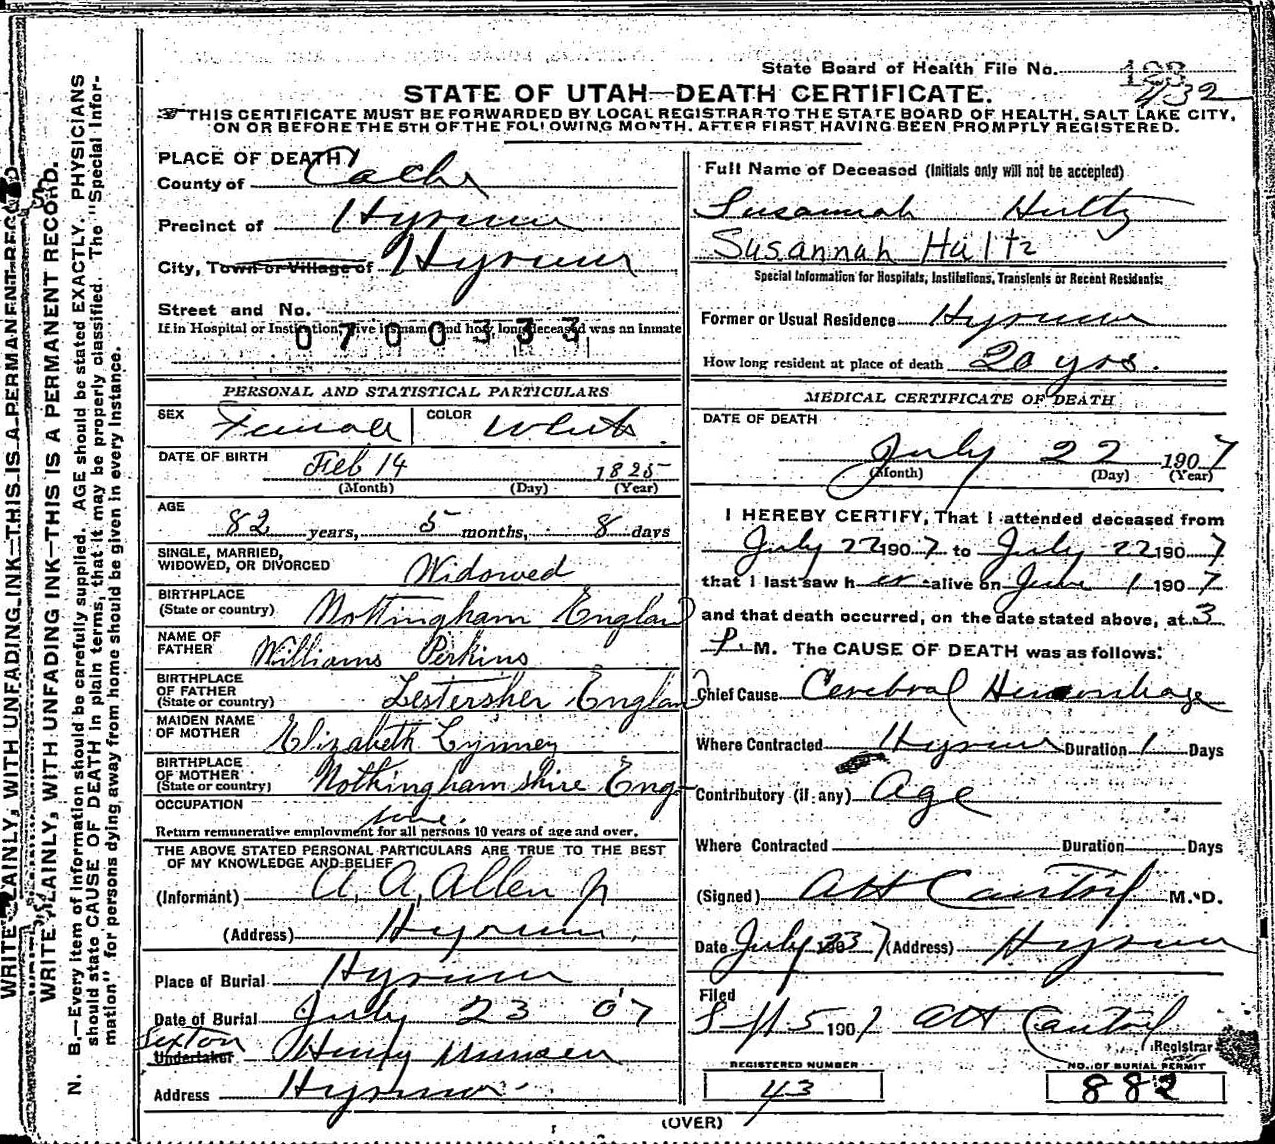 State Board of Health File No. 123
432
STATE OF UTAH—DEATH CERTIFICATE.
THIS CERTIFICATE MUST BE FORWARDED BY LOCAL REGISTRAR TO THE STATE BOARD OF HEALTH, SALT LAKE CITY,
ON OR BEFORE THE 5TH OF THE FOLLOWING MONTH, AFTER FIRST HAVING BEEN PROMPTLY REGISTERED.
PLACE OF DEATH
County of Cache
Precinct of Hyrum
City, Town or Village of Hyrum
Street and No.
If in Hospital or Institution, give its name and how long deceased was an inmate
0700333
PERSONAL AND STATISTICAL PARTICULARS
SEX Female COLOR White
DATE OF BIRTH Feb 14 1825
(Month) (Day) (Year)
AGE
82 years, 5 months, 8 days
SINGLE, MARRIED,
WIDOWED, OR DIVORCED Widowed
BIRTHPLACE
(State or country) Nottingham England
NAME OF
FATHER Williams Perkins
BIRTHPLACE
OF FATHER
(State or country) Lestersher England
MAIDEN NAME
OF MOTHER Elizabeth
BIRTHPLACE
OF MOTHER
(State or country) Nothingham shire Eng.
OCCUPATION
none.
Return remunerative employment for all persons 10 years of age and over.
THE ABOVE STATED PERSONAL PARTICULARS ARE TRUE TO THE BEST
OF MY KNOWLEDGE AND BELIEF
(Informant) A. A. Allen Jr
(Address) Hyrum.
Place of Burial Hyrum
Date of Burial July 23 07
Sexton
Undertaker Henry Munsen
Address Hyrum.
Full Name of Deceased (Initials only will not be accepted)
Susannah Hultz
Susannah Hultz
Special Information for Hospitals, Institutions, Transients or Recent Residents:
Former or Usual Residence Hyrum
How long resident at place of death 20 yrs.
MEDICAL CERTIFICATE OF DEATH
DATE OF DEATH
July 22 1907
(Month) (Day) (Year)
I HEREBY CERTIFY, That I attended deceased from
July 22 1907 to July 22 1907
that I last saw h er alive on June 1 1907
and that death occurred, on the date stated above, at 3
P. M. The CAUSE OF DEATH was as follows:
Chief Cause Cerebral Hemorrhage
Where Contracted Hyrum Duration 1 Days
Contributory (if any) Age
Where Contracted Duration Days
(Signed) M. D.
Date July 23 1907 (Address) Hyrum
Filed
5 1907 Registrar
REGISTERED NUMBER
43
NO. OF BURIAL PERMIT
882
(OVER)
WRITE PLAINLY, WITH UNFADING INK—THIS IS A PERMANENT RECORD
WRITE PLAINLY, WITH UNFADING INK—THIS IS A PERMANENT RECORD.
N. B.—Every item of information should be carefully supplied. AGE should be stated EXACTLY. PHYSICIANS
should state CAUSE OF DEATH in plain terms, that it may be properly classified. The "Special Infor-
mation" for persons dying away from home should be given in every instance.